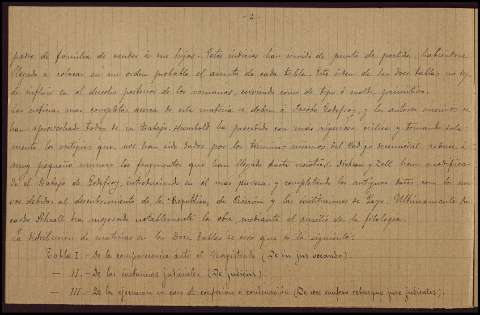 - 2 -
padre de familia de vender á sus hijos. Estos indicios han servido de punto de partida, habiéndose
llegado á colocar en un orden probable el asunto de cada tabla. Este orden de las doce tablas no de-
jó de influir en el derecho posterior de los romanos, sirviendo como de tipo ó molde primitivo.
Las noticias mas completas acerca de esta materia se deben á Jacobo Godefroy, y los autores
han aprovechado todos de su trabajo. Haubold ha procedido con mas rigurosa crítica y tomando sola-
mente los vestigios que nos han sido dados por los términos mismos del Código decemviral, reduce á
muy pequeño número los fragmentos que han llegado hasta nosotros. Dirksen y Zell han modifica-
do el trabajo de Godefroy, introduciendo en él mas pureza, y completando los antiguos datos con los nue-
vos debidos al descubrimiento de la República, de Cicerón y las instituciones de Gayo. Ultimamente Ri-
cardo Schoell ha mejorado notablemente la obra mediante el auxilio de la filología.
La distribución de materias en las Doce Tablas se cree que es la siguiente:
Tabla I. - De la comparecencia ante el magistrado (De in jus vocando)
— II. - De las instancias judiciales (De judiciis)
— III. - De la ejecución en caso de confesión ó condenación (De rebus jure judicatis).